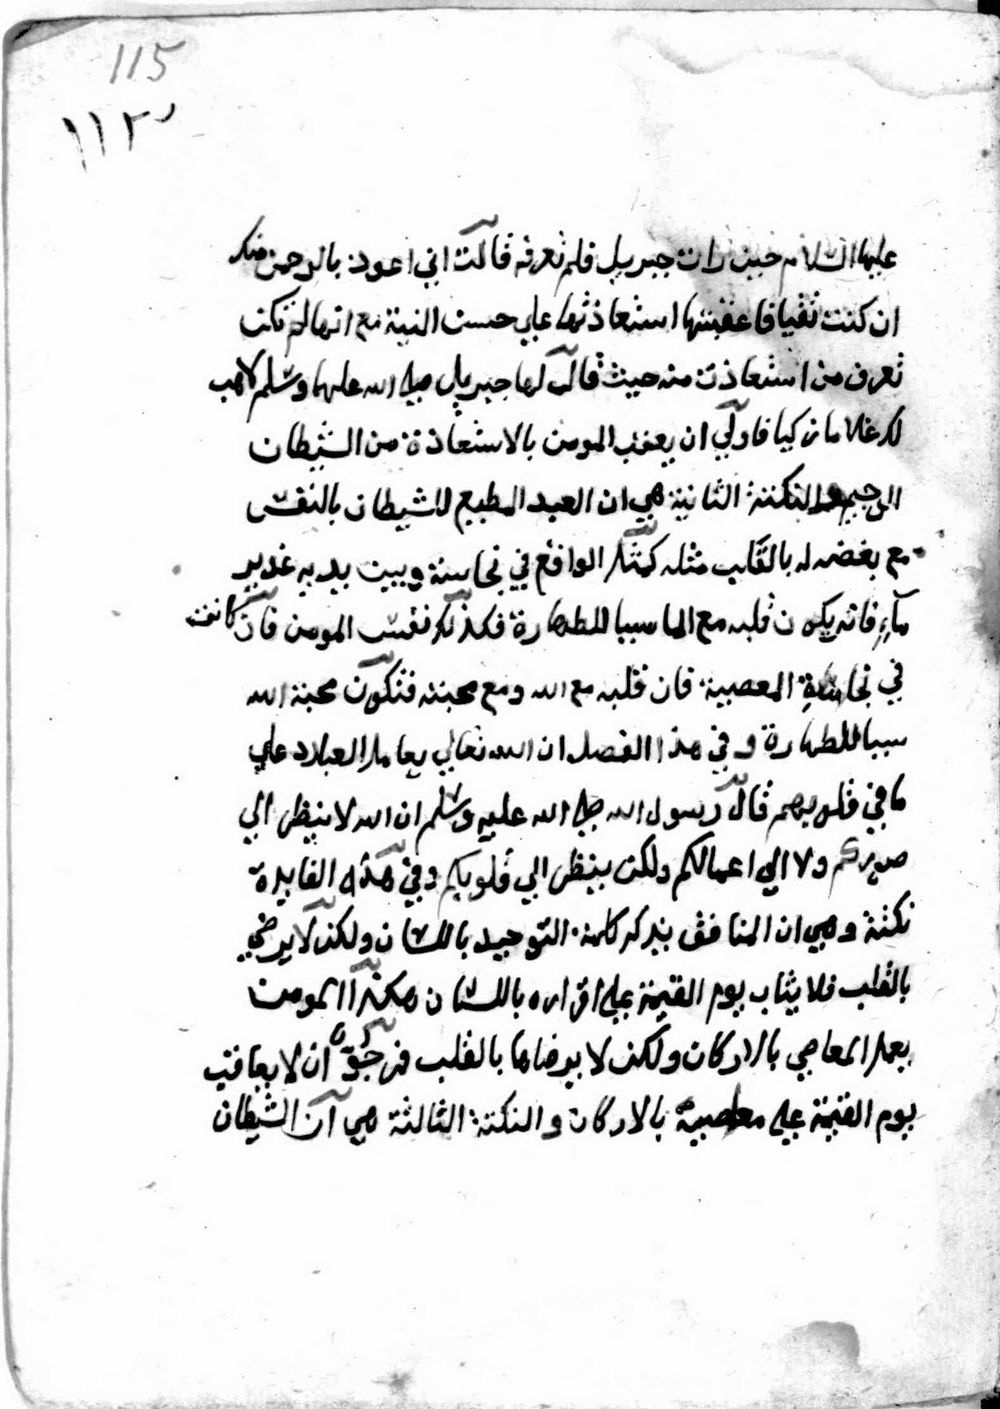 115
١١٣
عليها السلام حين رات جبريل فلم تعرفه قالت اني اعوذ بالرحمن منك
ان كنت تقيا فاعقبتها استعاذتها علي حسن النية مع انها لم تكن
تعرف من استعاذت منه حيث قال لها جبريل صلي الله عليهما وسلم لاهب
لك غلاما زكيا فاولي ان يعقب المومن بالاستعاذة من الشيطان
الرجيم والنكتة الثانية هي ان العبد المطيع للشيطان بالنفس
مع بغضه له بالقلب مثله كمثل الواقع في نجاسة وبين يديه غدير
مآء فانه يكون قلبه مع الما سببا للطهارة فكذلك نفس المومن فان كانت
في نجاسة المعصية فان قلبه مع الله ومع محبته فتكون محبة الله
سببا للطهارة وفي هذا الفصل ان الله تعالي يعامل العباد علي
ما في قلوبهم قال رسول الله صلي الله عليه وسلم ان الله لا ينظر الي
صوركم ولا الي اعمالكم ولكن ينظر الي قلوبكم وفي هذه الفايدة
نكتة وهي ان المنافق يذكر كلمة التوحيد باللسان ولكن لا يرضي
بالقلب فلا يثاب يوم القيمة علي اقراره باللسان هكذا المومن
يعمل المعاصي بالاركان ولكن لا يرضاها بالقلب فنرجوا ان لا يعاقب
يوم القيمة علي معصيته بالاركان والنكتة الثالثة هي ان الشيطان